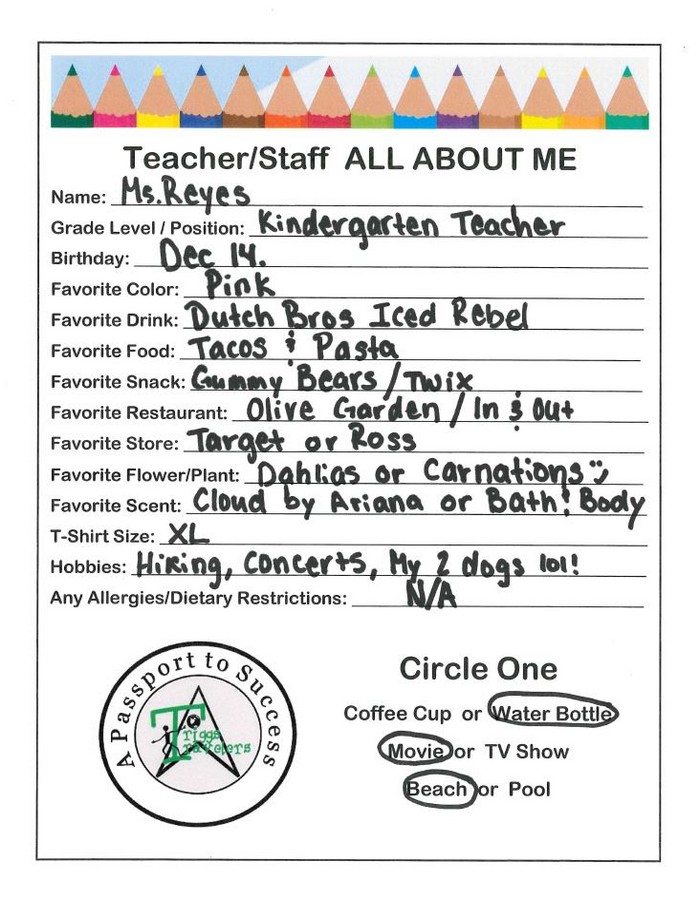 Teacher/Staff ALL ABOUT ME
Name: Ms. Reyes
Grade Level / Position: Kindergarten Teacher
Birthday: Dec 14.
Favorite Color: Pink
Favorite Drink: Dutch Bros Iced Rebel
Favorite Food: Tacos & Pasta
Favorite Snack: Gummy Bears / Twix
Favorite Restaurant: Olive Garden / In & Out
Favorite Store: Target or Ross
Favorite Flower/Plant: Dahlias or Carnations :)
Favorite Scent: Cloud by Ariana or Bath & Body
T-Shirt Size: XL
Hobbies: Hiking, Concerts, My 2 dogs lol!
Any Allergies/Dietary Restrictions: N/A
A Passport to Success
Triggs
Travelers
Circle One
Coffee Cup or Water Bottle
Movie or TV Show
Beach or Pool